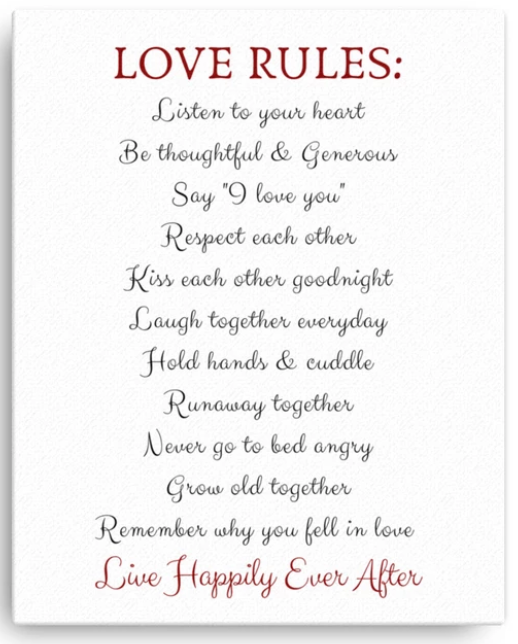 LOVE RULES:
Listen to your heart
Be thoughtful & Generous
Say "I love you"
Respect each other
Kiss each other goodnight
Laugh together everyday
Hold hands & cuddle
Runaway together
Never go to bed angry
Grow old together
Remember why you fell in love
Live Happily Ever After